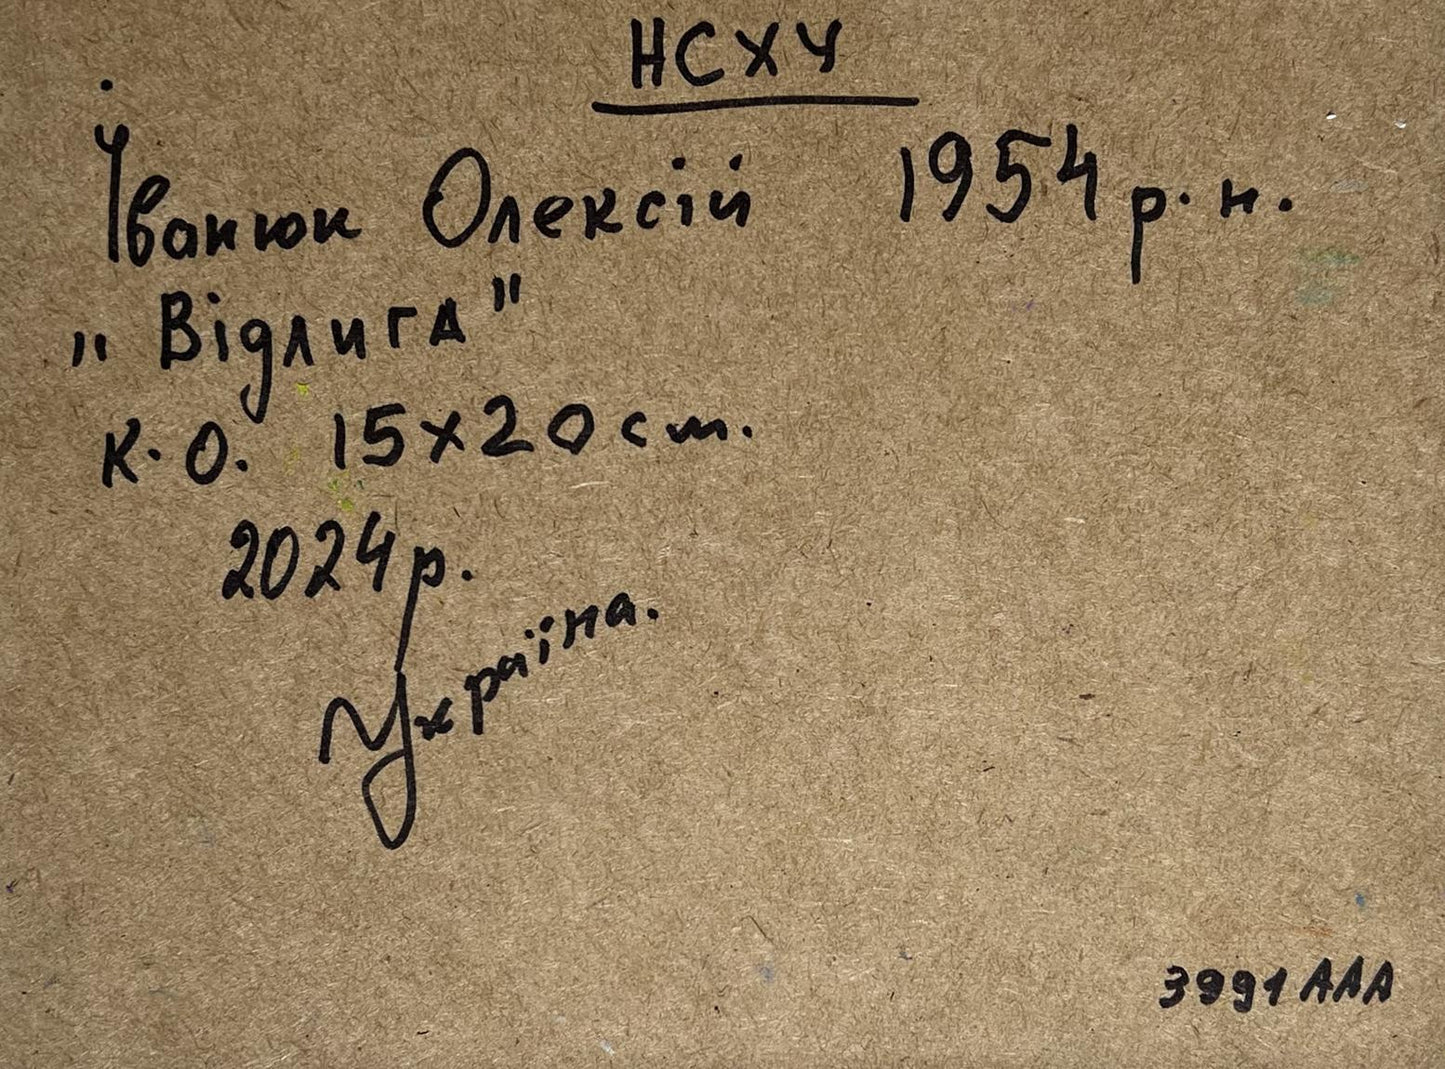 НСХУ
Іванюк Олексій 1954 р. н.
„Відлига"
К. О. 15х20 см.
2024 р.
Україна.
3991 ААА